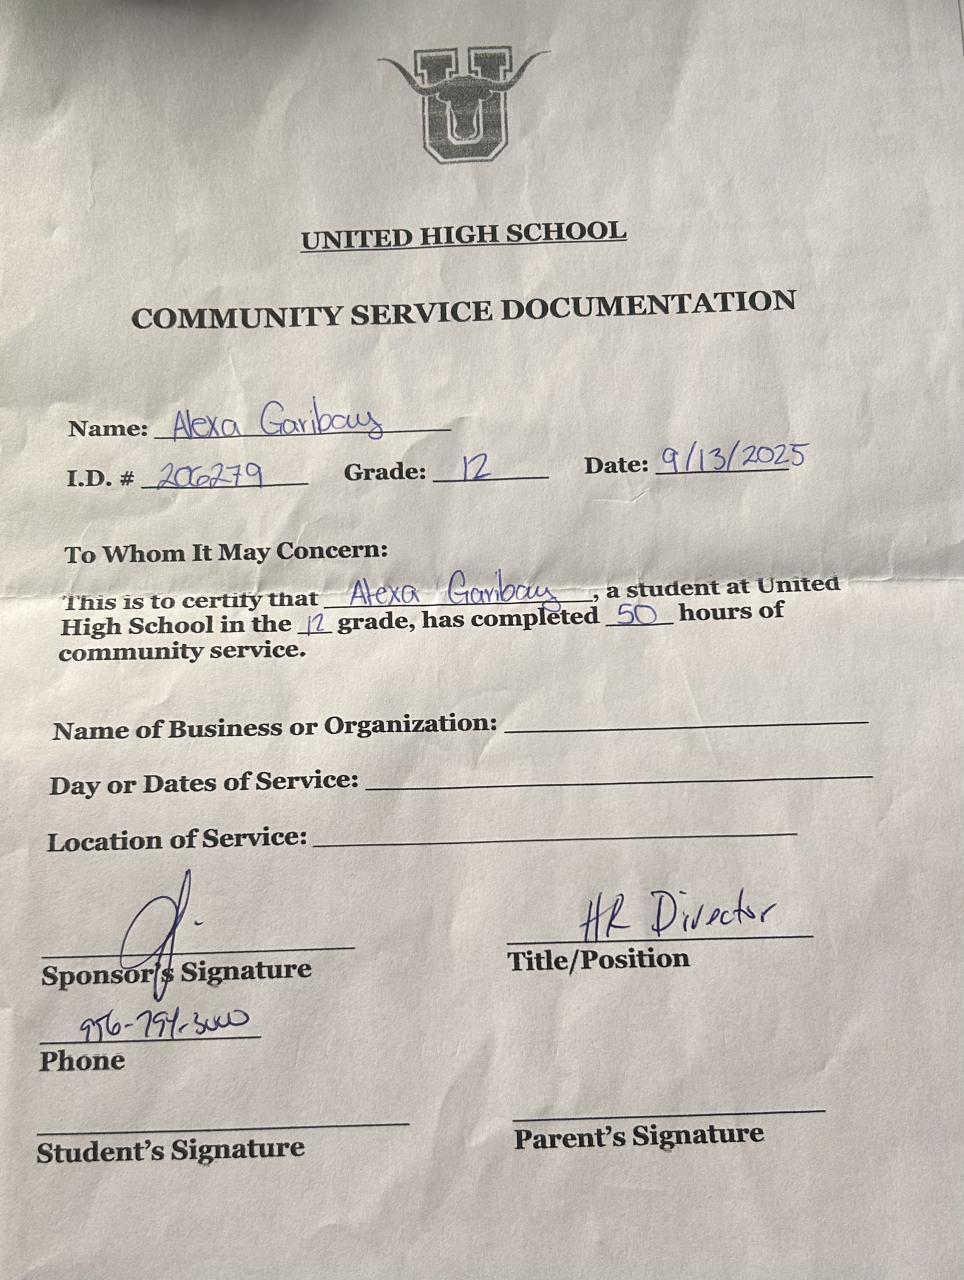 U
UNITED HIGH SCHOOL
COMMUNITY SERVICE DOCUMENTATION
Name: Alexa Garibay
I.D. # 206279 Grade: 12 Date: 9/13/2025
To Whom It May Concern:
This is to certify that Alexa Garibay, a student at United
High School in the 12 grade, has completed 50 hours of
community service.
Name of Business or Organization:
Day or Dates of Service:
Location of Service:
HR Director
Sponsor's Signature Title/Position
956-794-3000
Phone
Student's Signature Parent's Signature